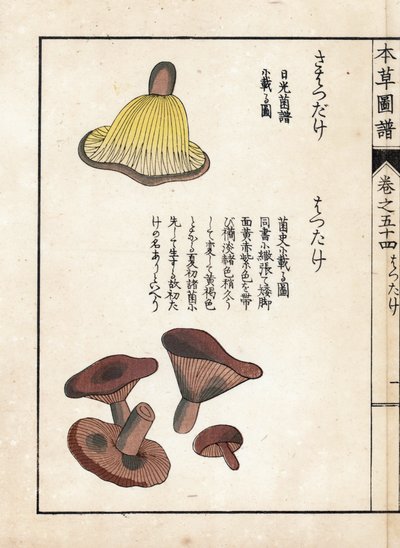 本草圖譜
卷之五十四
はつたけ
一
さまつだけ
日光菌譜
に載る圖
はつたけ
菌史に載る圖
同書に繖張て矮脚
面黄赤紫色を帯
び襉淡赭色稍久う
して変して黄褐色
となる夏初諸菌に
先して生する故初た
けの名ありといへり